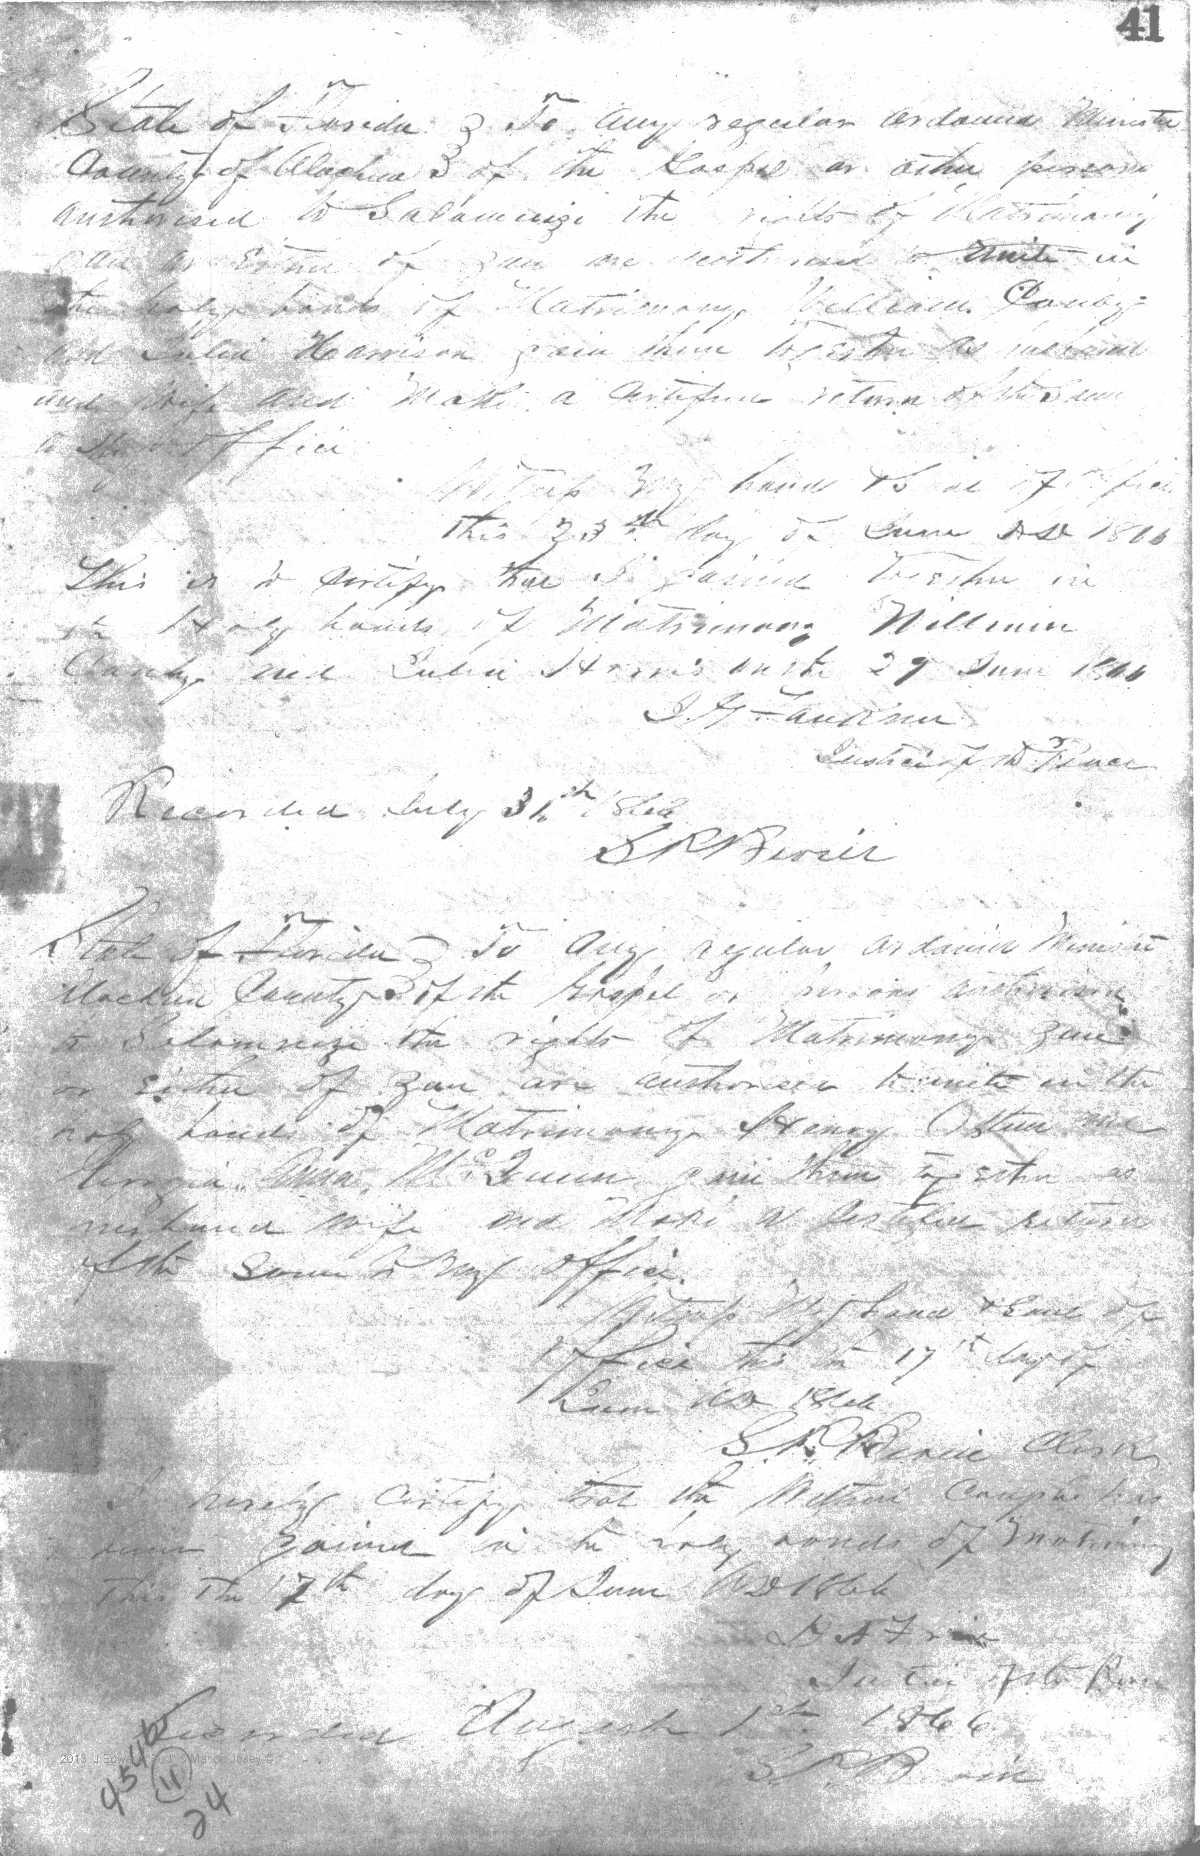 41
State of Florida } To any regular ardained Minister
County of Alachua } of the Gospel or other persons
authorised to Solemnize the rights of Matrimony
you or Either of you are authorised to unite in
the holy bonds of Matrimony William Canby
and Julia Harrison join them together as husband
and wife and Make a Certified return of the Same
to office
Witness my hand & Seal of office
this 23th day of June AD 1866
This is to certify that I joined together in
the Holy bonds of Matrimony William
Canby and Julia Harris on the 29 June 1866
Justice of the Peace
Recorded July 31th 1866
State of Florida } To any regular ardained Minister
Alachua County } of the Gospel or persons authorised
to Solemnize the rights of Matrimony you
or Either of you are authorised to unite in the
holy bonds of Matrimony Henry and
Anna McQueen join them together as
husband wife and Make a Certified return
of the Same to my office.
Witness My hand & Seal of
office this the 17th day of
June AD 1866
Clerk
I hereby certify that the Within Couple has
been joined in the holy bonds of Matrimony
this the 17th day of June AD 1866
Justice of the Peace
Recorded August 1th 1866
454b
11
24